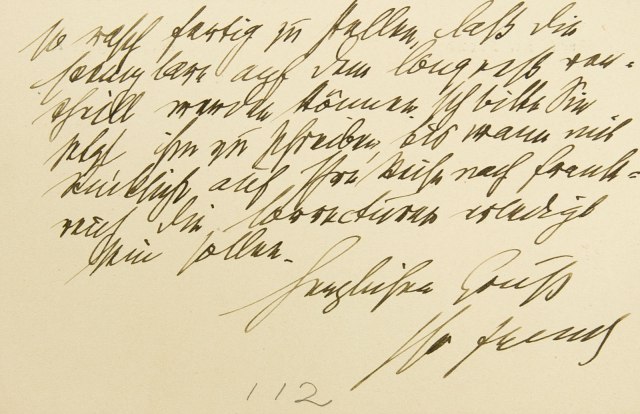 so rasch fertig zu stellen, daß die
Exemplare auf dem Congreß ver-
theilt werden können. Ich bitte Sie
jetzt ihm zu schreiben, bis wann mit
Rücksicht auf Ihre Reise nach Frank-
reich die Correcturen erledigt
sein sollen.
Herzlichen Gruß
Ihr
112